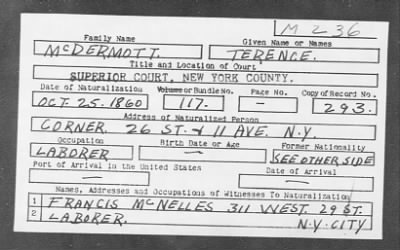 M 236
Family Name Given Name or Names
McDERMOTT. TERENCE.
Title and Location of Court
SUPERIOR COURT, NEW YORK COUNTY.
Date of Naturalization Volume or Bundle No. Page No. Copy of Record No.
OCT. 25. 1860 117. — 293.
Address of Naturalized Person
CORNER. 26 ST. & 11 AVE. N.Y.
Occupation Birth Date or Age Former Nationality
LABORER — SEE OTHER SIDE
Port of Arrival in the United States Date of Arrival
— —
Names, Addresses and Occupations of Witnesses To Naturalization
1 FRANCIS McNELLES 311 WEST. 29 ST.
2 LABORER. N.Y. CITY